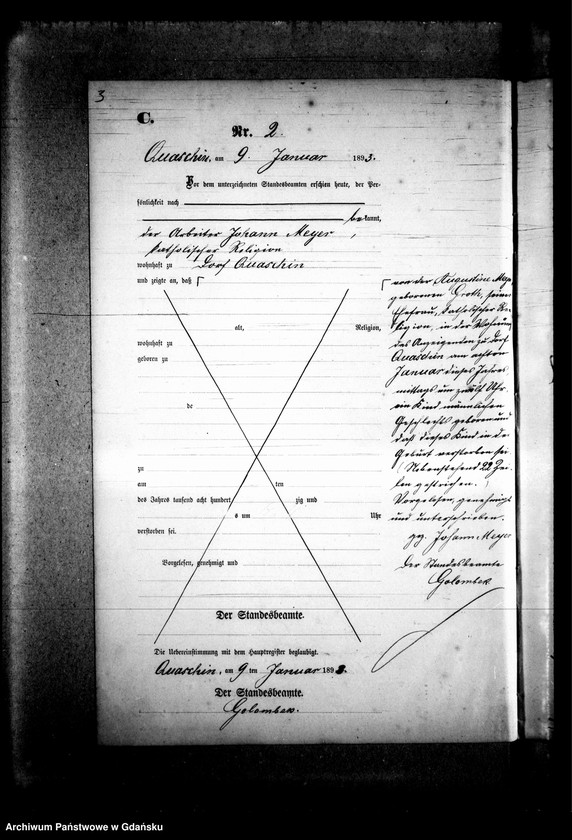 3
C.
Nr. 2.
Quaschin, am 9. Januar 1893.
Vor dem unterzeichneten Standesbeamten erschien heute, der Per-
sönlichkeit nach
bekannt,
der Arbeiter Johann Meyer,
katholischer Religion
wohnhaft zu Dorf Quaschin
und zeigte an, daß
alt, Religion,
wohnhaft zu
geboren zu
de
zu
am ten
des Jahres tausend acht hundert zig und
s um Uhr
verstorben sei.
Vorgelesen, genehmigt und
Der Standesbeamte.
von der Augustine Meyer
geborenen Groth, seiner
Ehefrau, katholischer Re-
ligion, in der Wohnung
des Anzeigenden zu Dorf
Quaschin am achten
Januar dieses Jahres
mittags um zwölf Uhr
ein Kind männlichen
Geschlechts geboren und
daß dieses Kind in der
Geburt verstorben sei
Nebenstehend 22 Zei-
len gestrichen.
Vorgelesen, genehmigt
und unterschrieben.
gez. Johann Meyer
Der Standesbeamte
Golombek
Die Uebereinstimmung mit dem Hauptregister beglaubigt.
Quaschin, am 9 ten Januar 1893.
Der Standesbeamte.
Golombek.
Archiwum Państwowe w Gdańsku